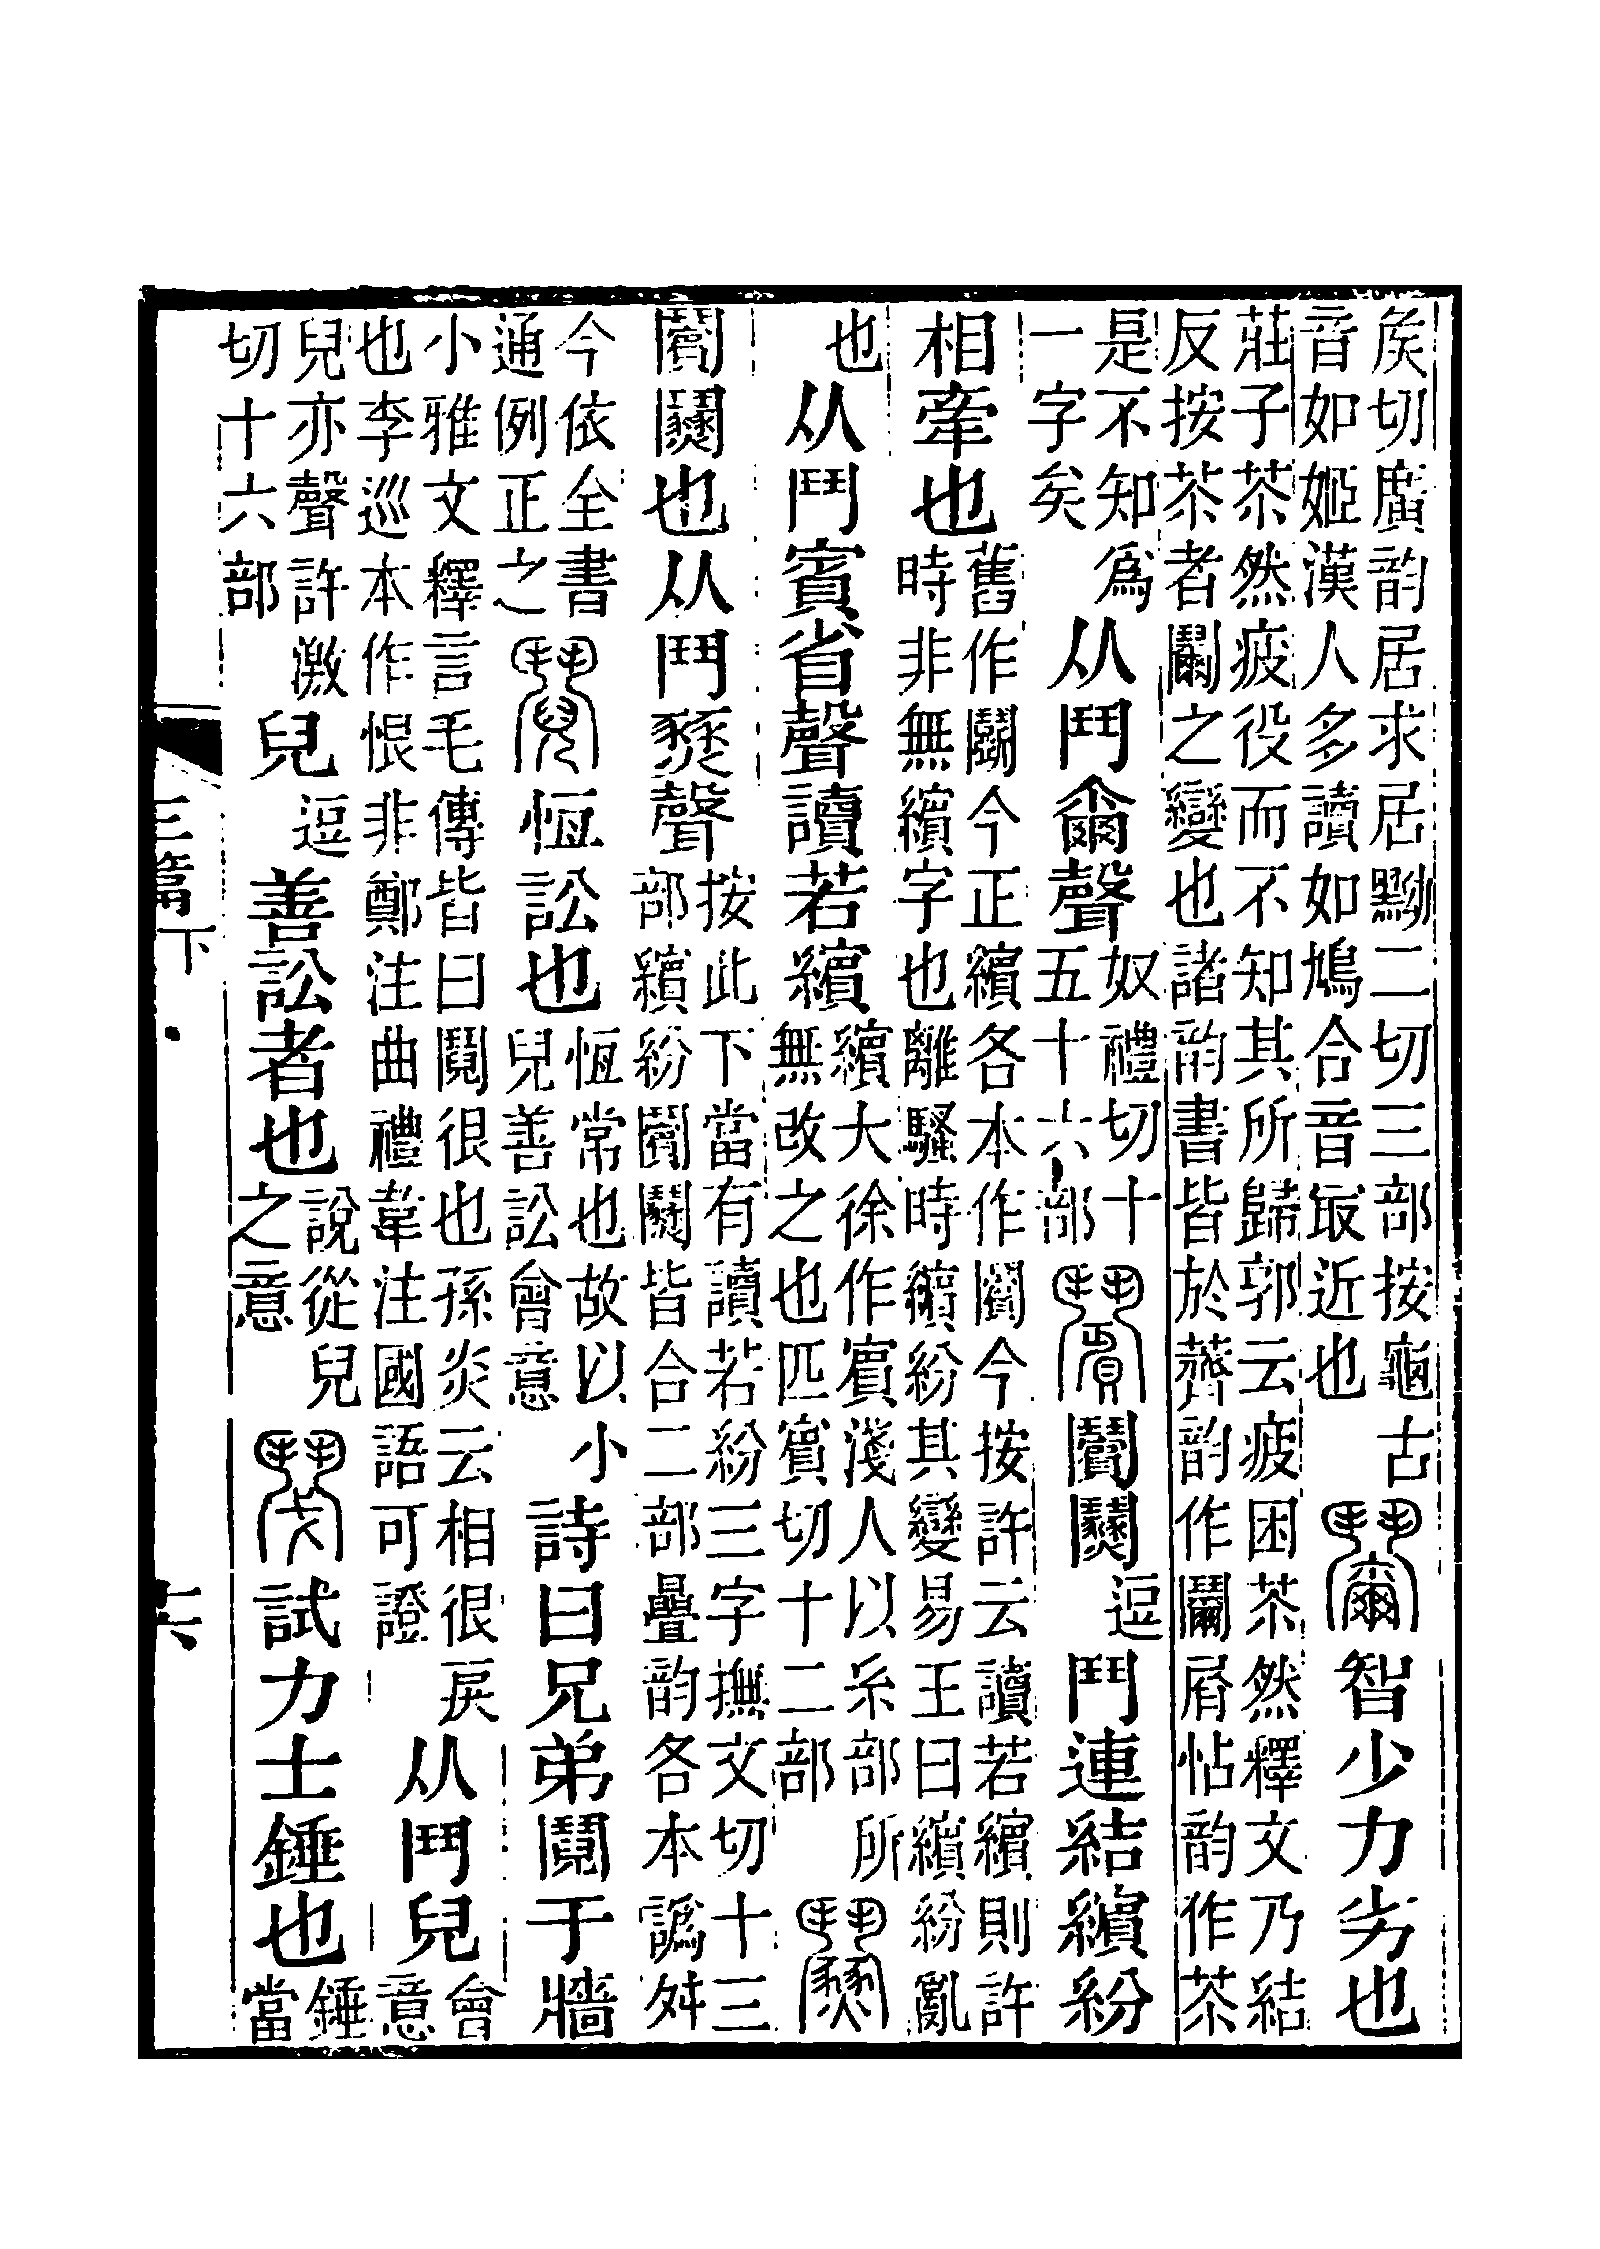 矦切廣韵居求居黝二切三部按龜古音如姬漢人多讀如鳩合音㝡近也𩰞智少力劣也
莊子苶然疲役而不知其所歸郭云疲困苶然釋文乃結反按苶者𩰞之變也諸韵書皆於薺韵作𩰞屑帖韵作苶
是不知爲一字矣从鬥爾聲奴禮切十五十六部逗鬥連結繽紛
相牽也舊作鬭今正繽各本作今按許云讀若繽則許時非無繽字也離騷時繽紛其變易王曰繽紛亂
也从鬥賓省聲讀若繽繽大徐作賓淺人以糸部所無改之也匹賓切十二部
也从鬥燹聲按此下當有讀若紛三字撫文切十三部繽紛皆合二部疊韵各本譌舛
今依全書通例正之鬩恆訟也恆常也故以小兒善訟會意詩曰兄弟鬩于牆
小雅文釋言毛傳皆曰鬩很也孫炎云相很戾也李巡本作恨非鄭注曲禮韋注國語可證从鬥兒會意
兒亦聲許激切十六部兒逗善訟者也說從兒之意試力士錘也錘當
三篇下
十六